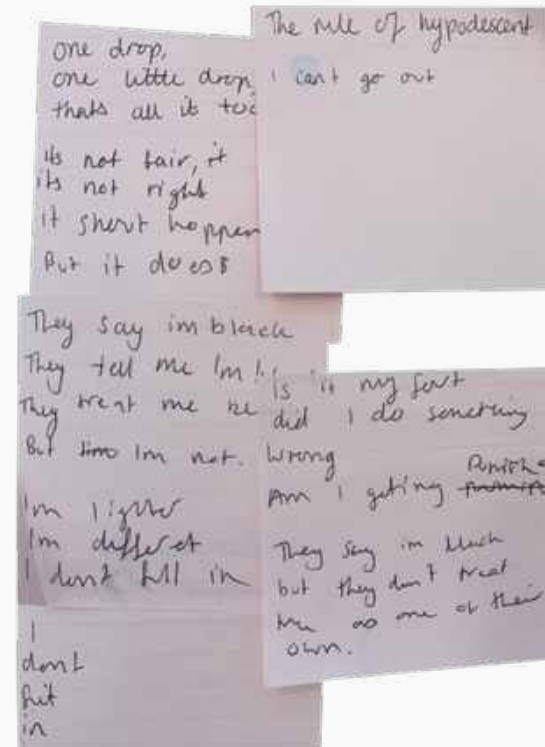 The rule of hypodescent
I can't go out
one drop,
one little drop,
thats all it
its not fair, it
its not right
it
But it does
They say im black
They tell me Im
They treat me
But Im not.
Im lighter
Im differet
I dont in
I
dont
fit
in
Is it my
did I do something
wrong
Am I geting
They say im black
but they don't treat
me as one of their
own.